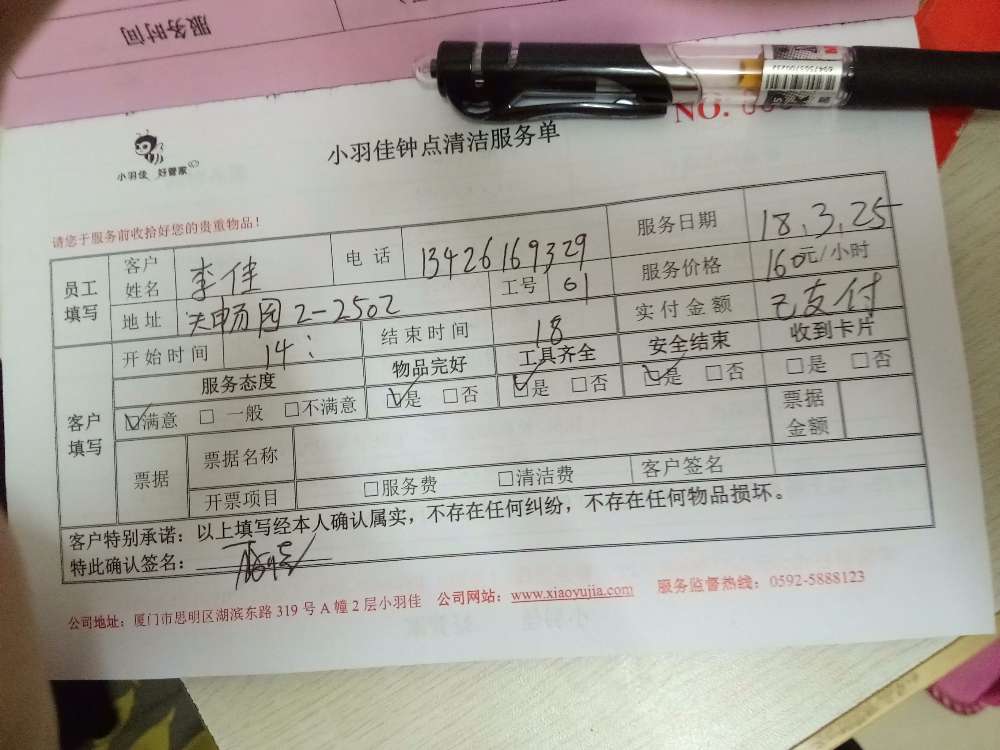 服务时间
NO.
小羽佳 好管家
小羽佳钟点清洁服务单
请您于服务前收拾好您的贵重物品！
员工填写 客户姓名 李佳 电话 13426169329 服务日期 18.3.25
地址 天畅园2-2502 工号 61 服务价格 160元/小时
客户填写 开始时间 14: 结束时间 18 实付金额 已支付
服务态度 物品完好 工具齐全 安全结束 收到卡片
☑满意 □一般 □不满意 ☑是 □否 ☑是 □否 ☑是 □否 □是 □否
票据 票据名称 票据金额
开票项目 □服务费 □清洁费 客户签名
客户特别承诺：以上填写经本人确认属实，不存在任何纠纷，不存在任何物品损坏。
特此确认签名：
公司地址：厦门市思明区湖滨东路319号A幢2层小羽佳 公司网站：www.xiaoyujia.com 服务监督热线：0592-5888123